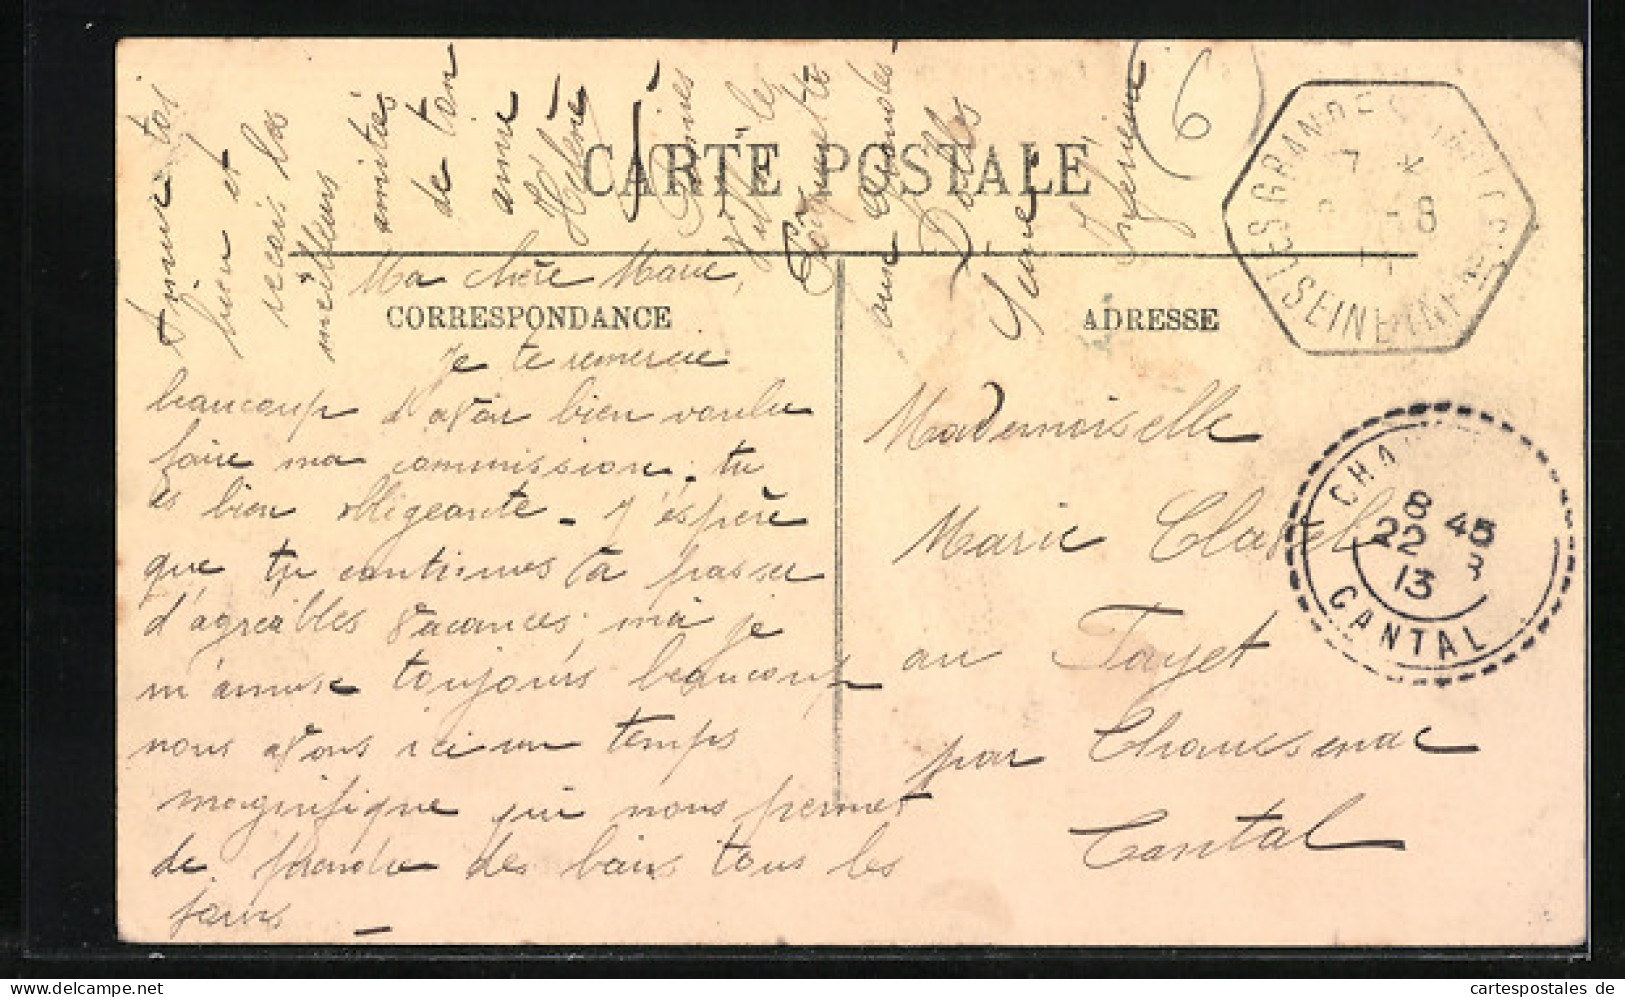 CARTE POSTALE
CORRESPONDANCE
ADRESSE
Ma chère Marie,
Je te remercie
beaucoup d'avoir bien voulu
faire ma commission. tu
es bien obligeante - J'espère
que tu continues à passer
d'agréables vacances; moi je
m'amuse toujours beaucoup
nous avons ici un temps
magnifique qui nous permet
de prendre des bains tous les
jours -
Amuse toi
bien et
reçois les
meilleurs
amitiés
de ton
amie
Hélène
Villa les
aux Grandes
Dalles
Seine
Inférieure
6
Mademoiselle
Marie Clavel
au Fayet
par Chaussenac
Cantal
LES GRANDES DALLES
SEINE INFRE
7 *
-8
CHA
8 45
22 8
13
CANTAL
cartespostales.de
cartespostales de